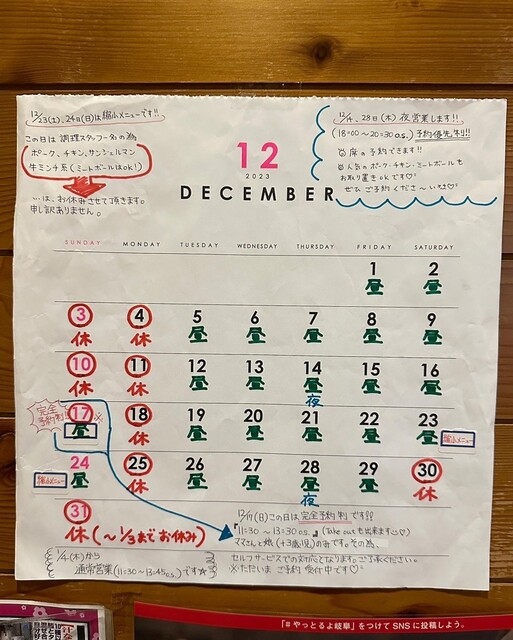 12/23(土)、24日(日)は縮小メニューです!!
この日は 調理スタッフ一名の為
ポーク、チキン、サンジェルマン
牛ミンチ系(ミートボールはok!)
…は、お休みさせて頂きます。
申し訳ありません。
12/14、28日(木)夜営業します!!
(18:00〜20:30o.s.) 予約優先制!!
席の予約できます!!
人気のポーク・チキン・ミートボールも
お取り置きokです♡
ぜひご予約くださ〜いませ♡
12
2023
DECEMBER
SUNDAY MONDAY TUESDAY WEDNESDAY THURSDAY FRIDAY SATURDAY
1 2
昼 昼
3 4 5 6 7 8 9
休 休 昼 昼 昼 昼 昼
10 11 12 13 14 15 16
休 休 昼 昼 昼 昼 昼
夜
完全
予約制
17 ※ 18 19 20 21 22 23
昼 休 昼 昼 昼 昼 昼 縮小メニュー
24 25 26 27 28 29 30
縮小メニュー 休 昼 昼 昼 昼 休
夜
31
休(〜1/3までお休み)
1/4(木)から
通常営業(11:30〜13:45o.s.)です☆
12/17(日)この日は完全予約制です!!
『11:30〜13:30o.s.』(Take outも出来ます♡)
のみです。その為、
セルフサービスでの対応となります。ご了承ください。
※ただいま ご予約 受付中です♡
「#やっとるよ岐阜」をつけてSNSに投稿しよう。